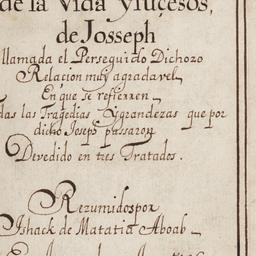 de la Vida y sucesos,
de Josseph
llamada el Perseguido Dichozo
Relacion muy agradavel
En que se refieren
das las Tragedias Y grandezas que por
dicho Joseph passaron
Devedido en tres Tratados.
Rezumidos por
Ishack de Matatia Aboab